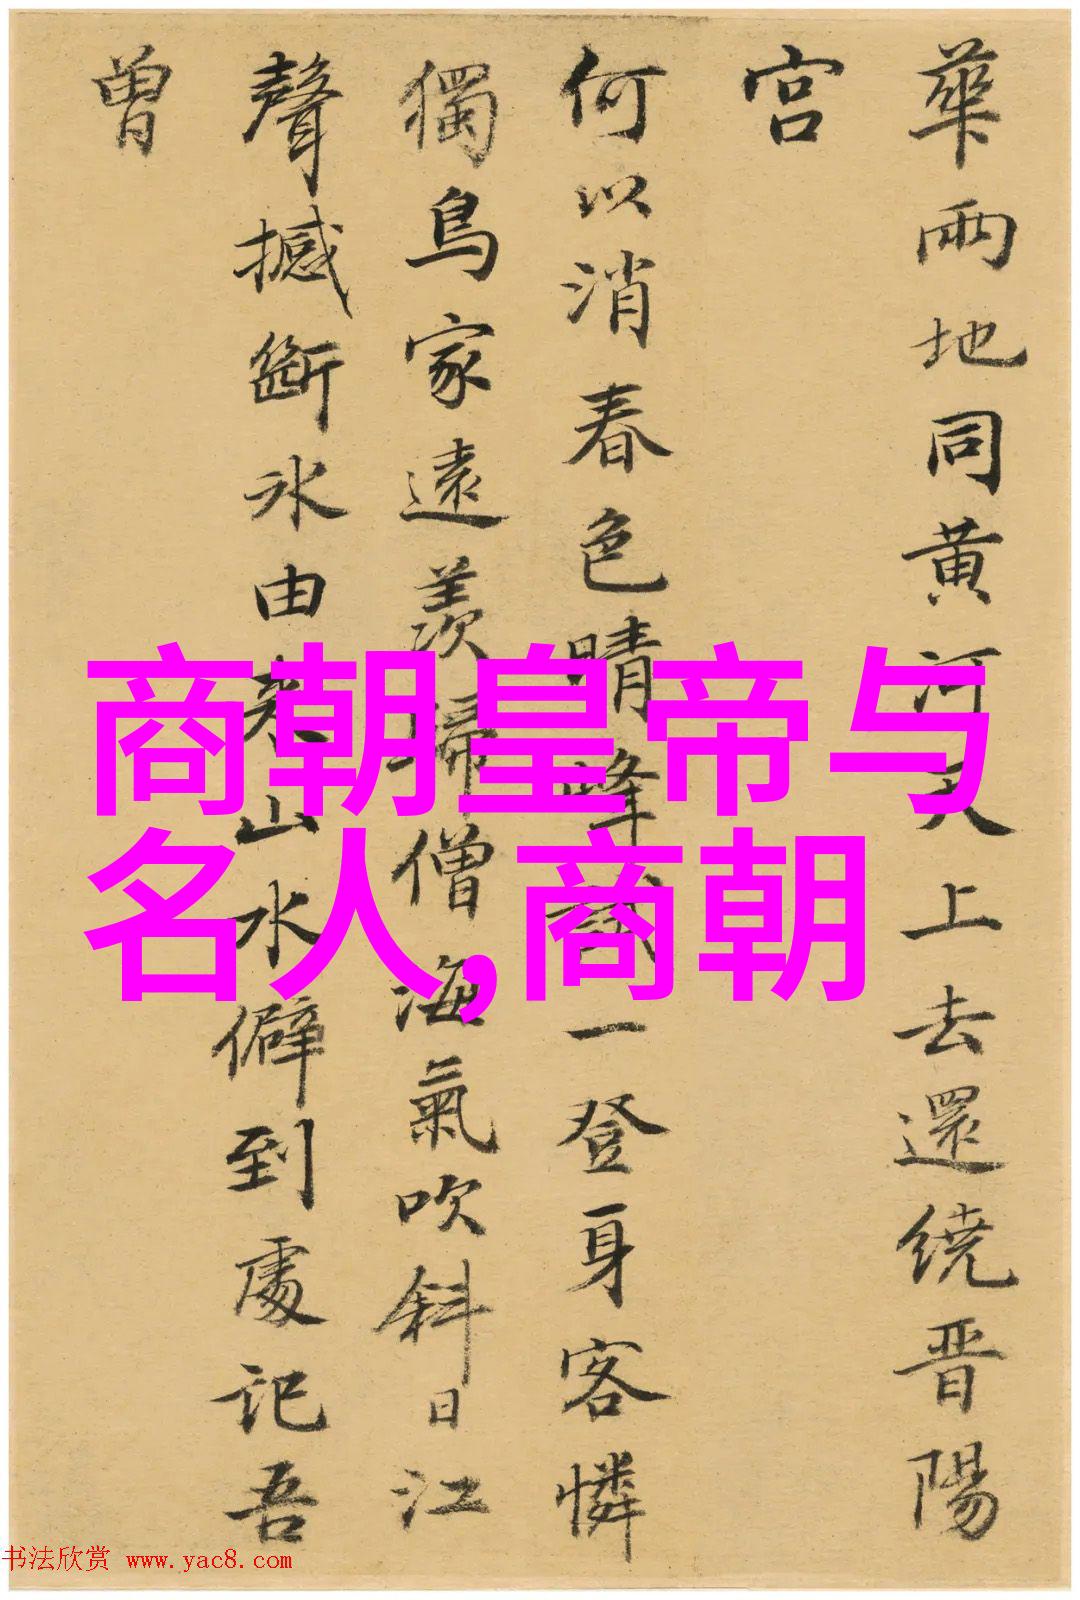 華兩地同黄河天上去還繞晋陽
宫
何以消春色晴峰試一登身客憐
獨鳥家遠羨歸僧海氣吹斜日江
聲撼斷氷由来山水僻到處記吾
曾
商朝皇帝与
名人,商朝
书法欣赏 www.yac8.com